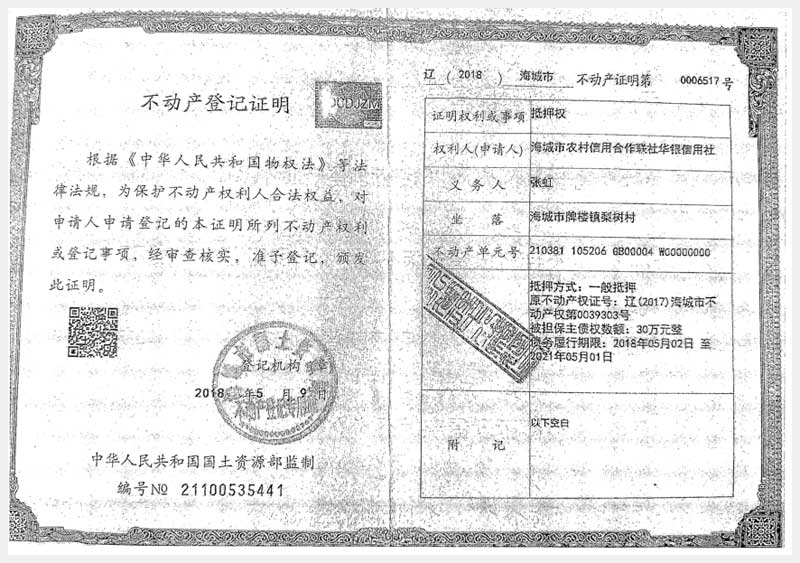 不动产登记证明
根据《中华人民共和国物权法》等法
律法规，为保护不动产权利人合法权益，对
申请人申请登记的本证明所列不动产权利
或登记事项，经审查核实，准予登记，颁发
此证明。
登记机构 章
2018 年 5 月 9 日
不动产登记专用
中华人民共和国国土资源部监制
编号№ 21100535441
辽 ( 2018 ) 海城市 不动产证明第 0006517 号
证明权利或事项 抵押权
权利人(申请人) 海城市农村信用合作联社华银信用社
义务人 张虹
坐落 海城市牌楼镇梨树村
不动产单元号 210381 105206 GB00004 W00000000
抵押方式：一般抵押
原不动产权证号：辽(2017)海城市不
动产权第0039303号
被担保主债权数额：30万元整
债务履行期限：2018年05月02日 至
2021年05月01日
附记 以下空白